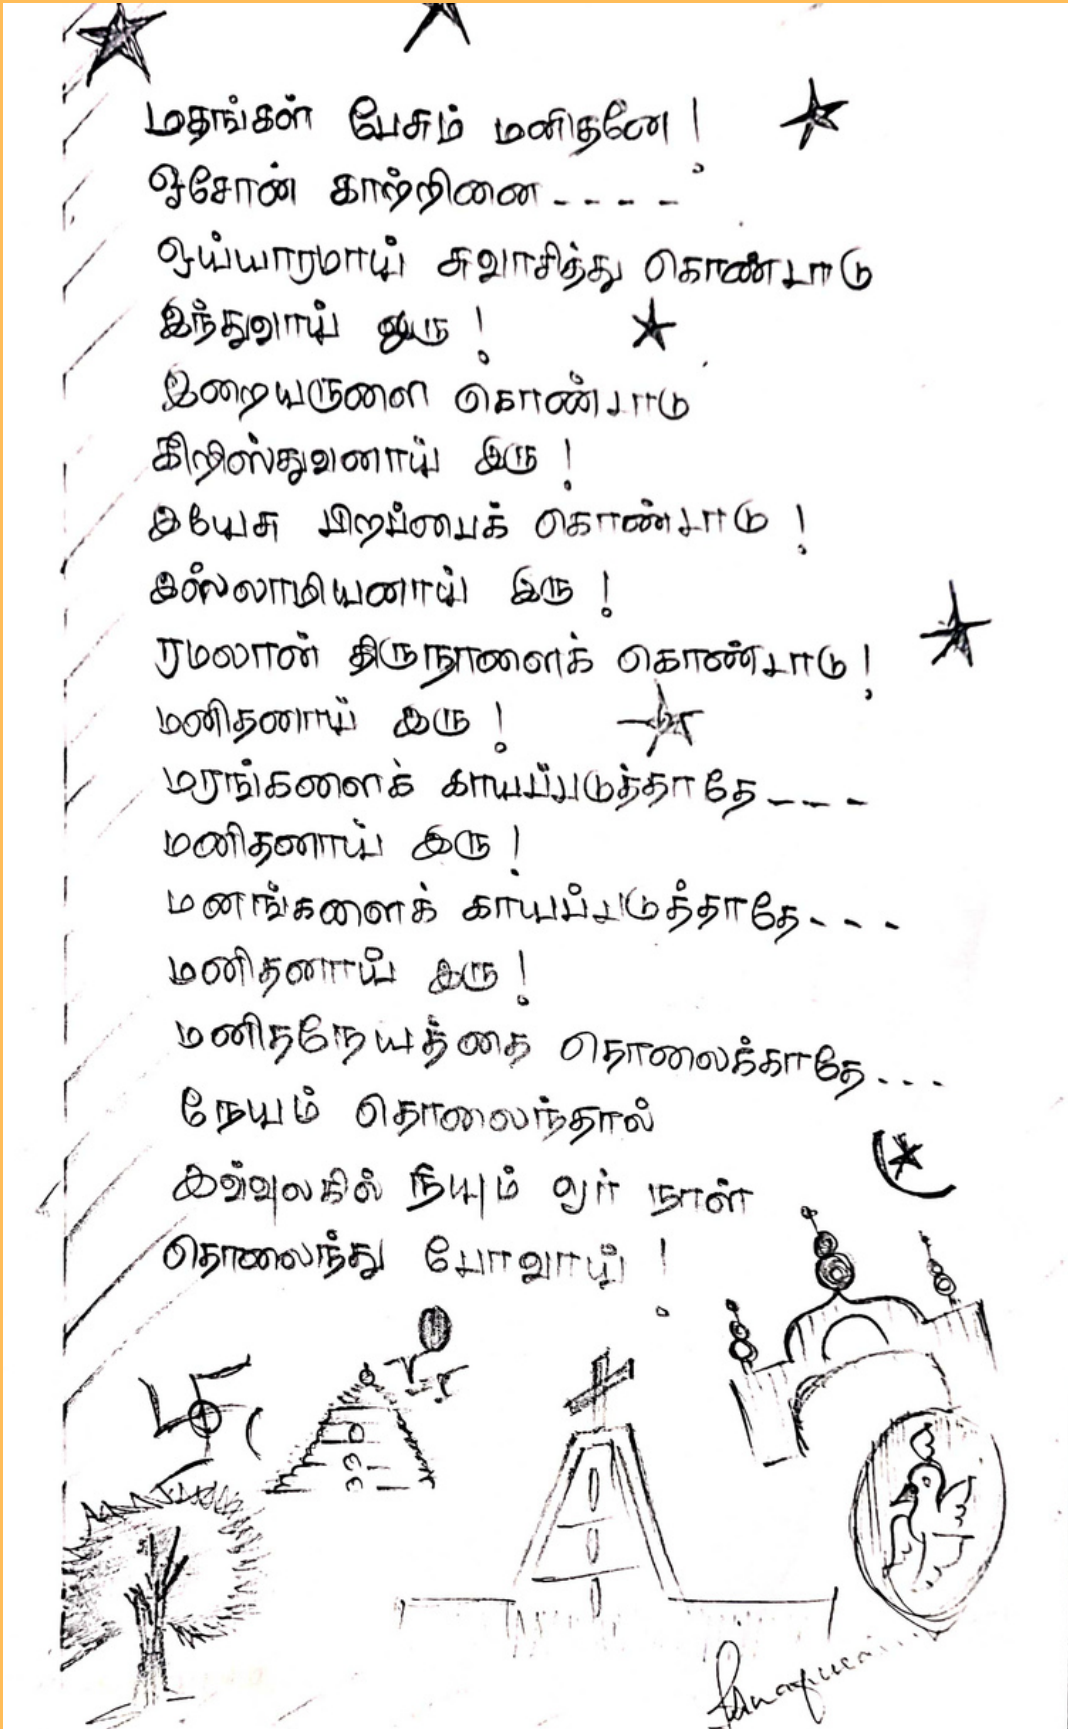 மதங்கள் பேசும் மனிதனே!
ஓசோன் காற்றினை----
ஒய்யாரமாய் சுவாசித்து கொண்டாடு
இந்துவாய் இரு!
இறையருளை கொண்டாடு
கிறிஸ்துவனாய் இரு!
இயேசு பிறப்பைக் கொண்டாடு!
இஸ்லாமியனாய் இரு!
ரமலான் திருநாளைக் கொண்டாடு!
மனிதனாய் இரு!
மரங்களைக் காயப்படுத்தாதே---
மனிதனாய் இரு!
மனங்களைக் காயப்படுத்தாதே---
மனிதனாய் இரு!
மனிதநேயத்தை தொலைக்காதே...
நேயம் தொலைந்தால்
இவ்வுலகில் நீயும் ஓர் நாள்
தொலைந்து போவாய்!